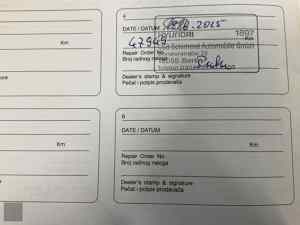 Km
Km
4
DATE / DATUM
2015
47949
Km
Repair Order No.
Broj radnog naloga
HYUNDAI
Automobile GmbH
Berlin
Dealer's stamp & signature
Pečat i potpis prodavača
6
DATE / DATUM
Km
Repair Order No.
Broj radnog naloga
Dealer's stamp & signature
Pečat i potpis prodavača